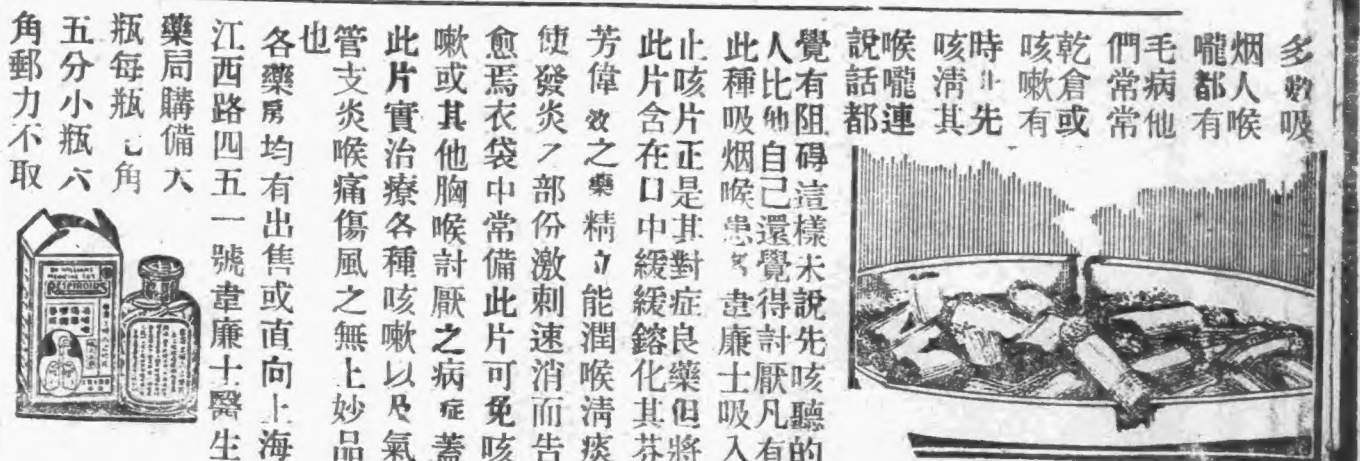 多數吸
烟人喉
嚨都有
毛病他
們常常
乾倉或
咳嗽有
時非先
咳清其
喉嚨連
說話都
覺有阻碍這樣未說先咳聽的
人比他自己還覺得討厭凡有
此種吸烟喉患者韋廉士吸入
止咳片正是其對症良藥但將
此片含在口中緩緩鎔化其芬
芳偉效之藥精立能潤喉淸痰
使發炎之部份激刺速消而告
愈焉衣袋中常備此片可免咳
嗽或其他胸喉討厭之病症蓋
此片實治療各種咳嗽以及氣
管支炎喉痛傷風之無上妙品
也
各藥房均有出售或直向上海
江西路四五一號韋廉士醫生
藥局購備大
瓶每瓶 角
五分小瓶六
角郵力不取
DR WILLIAMS
MEDICINE CO'S
RESPIROIDS